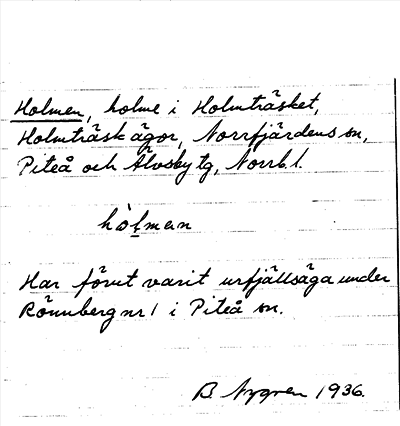 Holmen, holme i Holmträsket,
Holmträsk ägor, Norrfjärdens sn,
Piteå och Älvsby tg, Norrb. l.
hòlmen
Har förut varit urfjällsäga under
Rönnberg nr 1 i Piteå sn.
B. Nygren 1936.